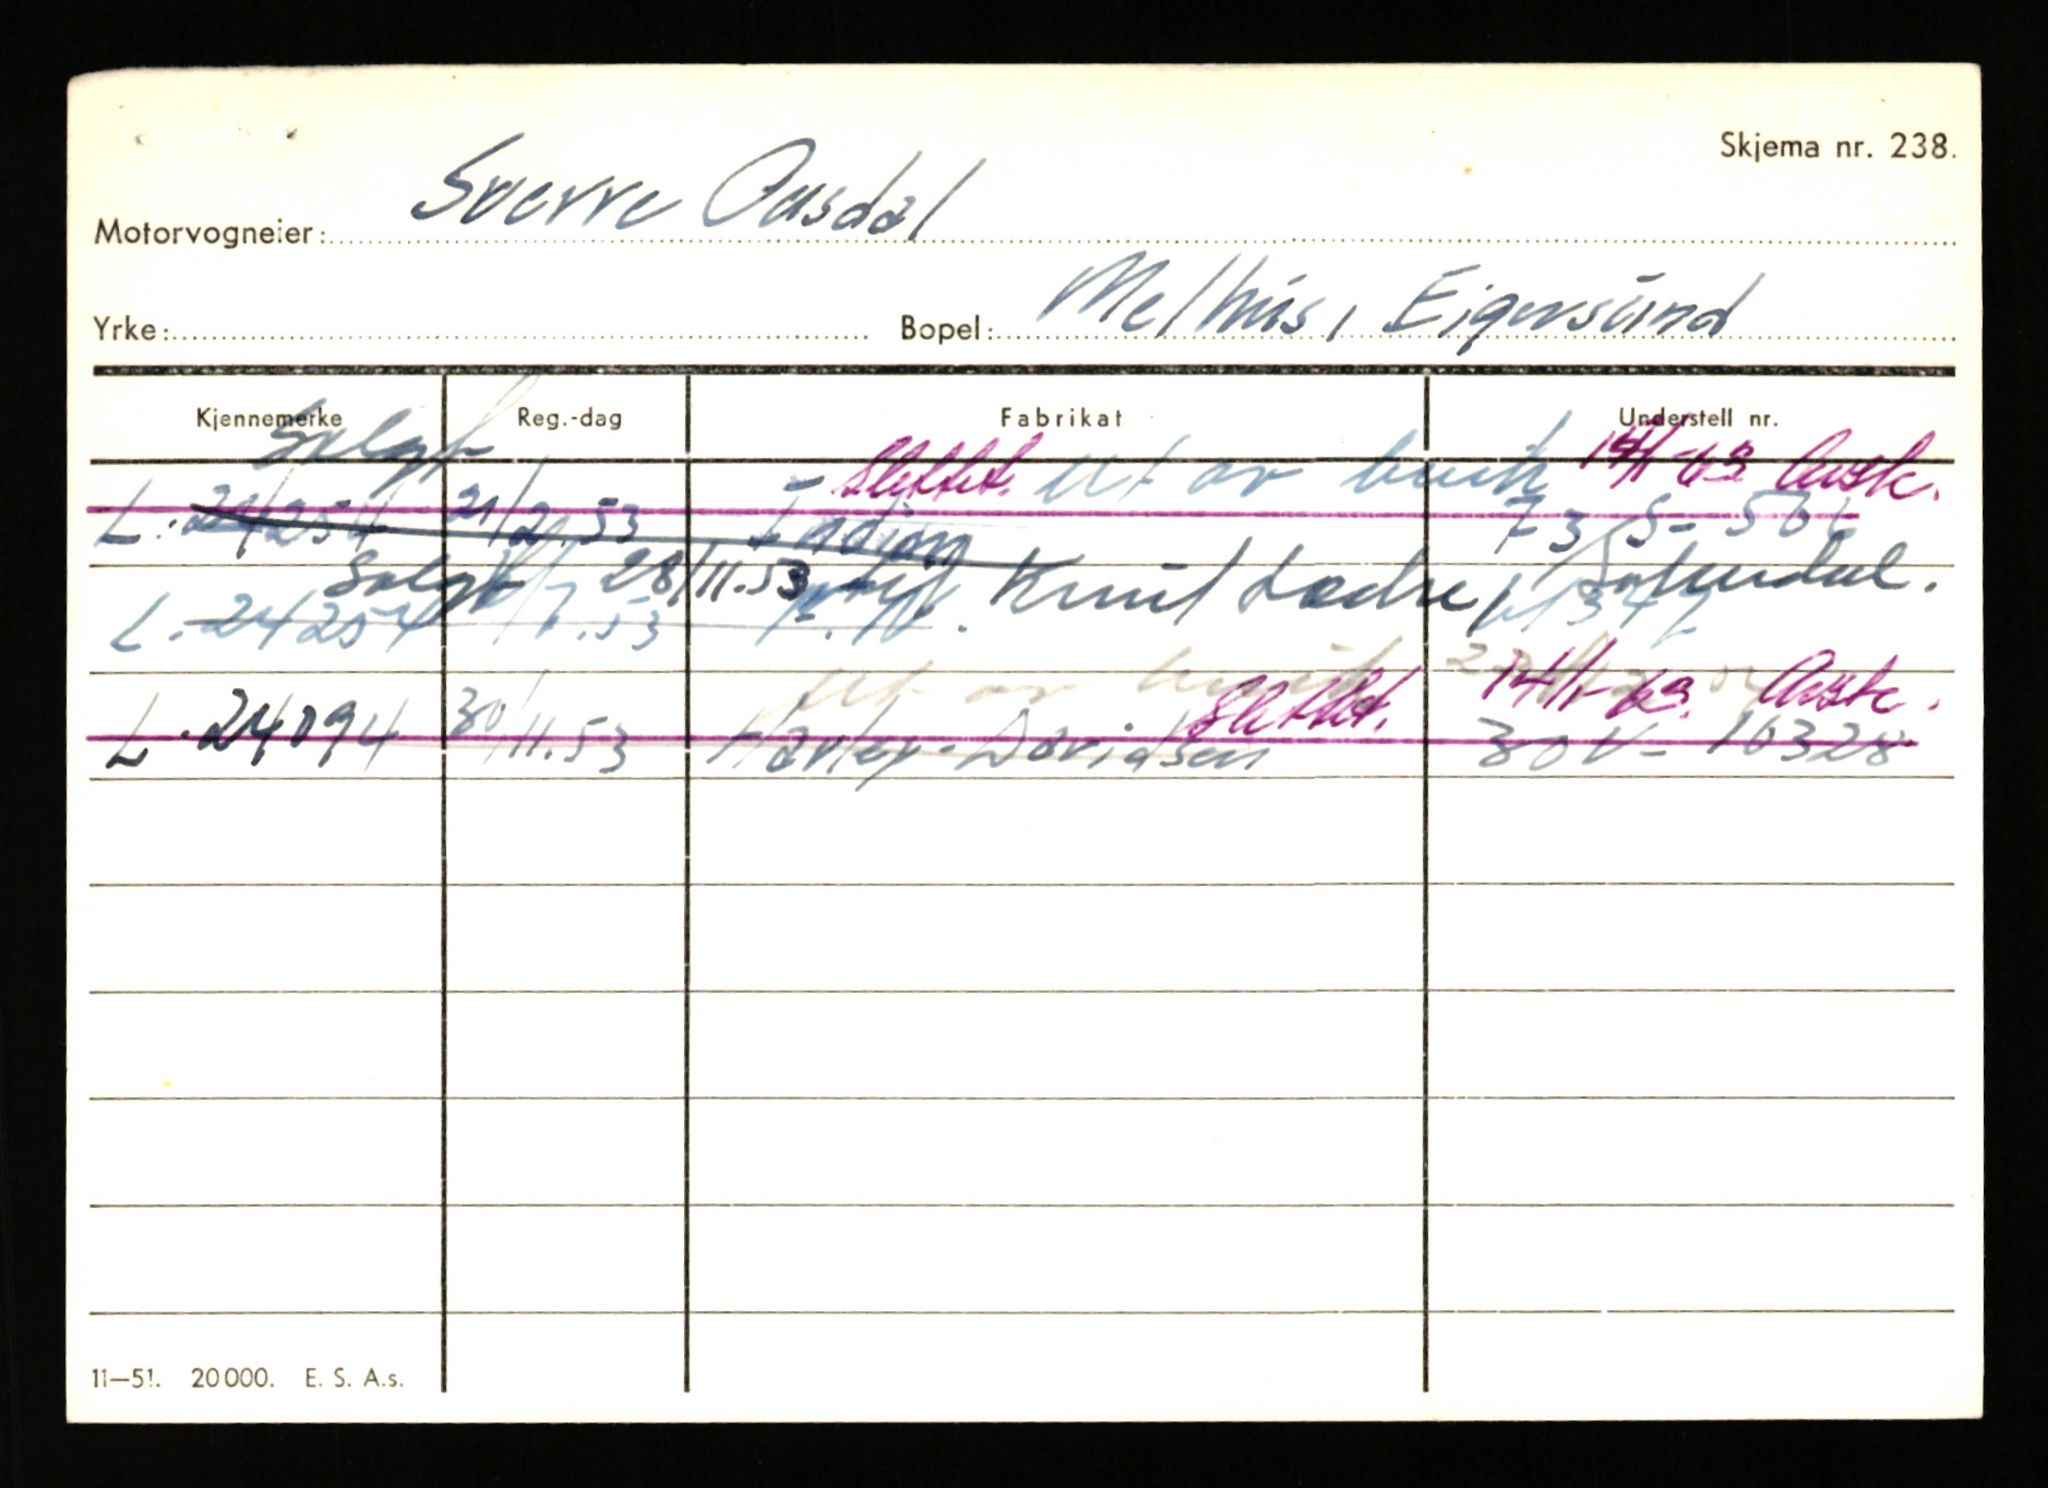 Skjema nr. 238.
Motorvogneier: Sverre Ousdal
Yrke: Bopel: Melhus, Eigersund
Kjennemerke Reg.-dag Fabrikat Understell nr.
Solgt Slettet. Ut av bruk 14/1-63 Avsk.
L. 24254 21/2.53 Indian 73 S- 561
Solgt 28/11.53 til Knut Lædre, Sokndal.
L. 24254 /7.53
Ut av bruk Slettet. 14/1-63. Avsk.
L. 24094 30/11.53 Harley-Davidson 30V- 16328
11—51. 20000. E. S. A.s.